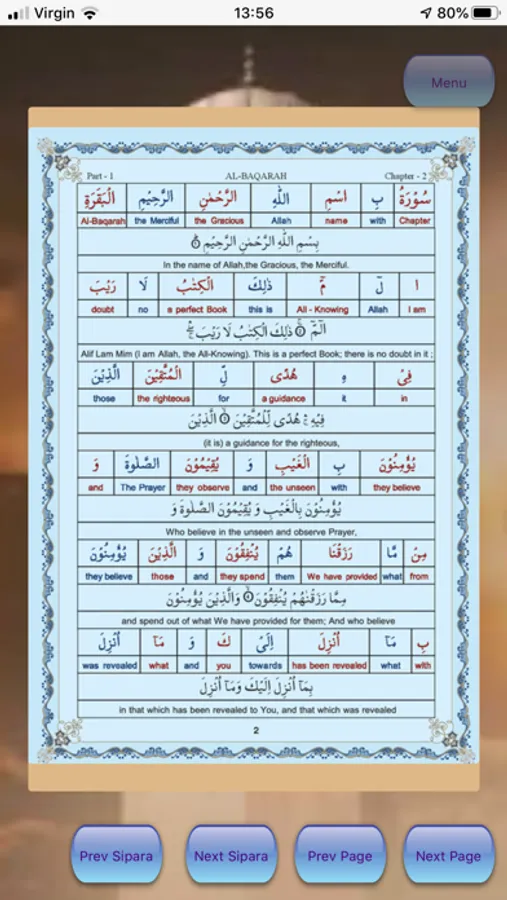 Virgin 13:56 80%
Menu
Part - 1 AL-BAQARAH Chapter - 2
سُوْرَةُ بِ اسْمِ اللّٰهِ الرَّحْمٰنِ الرَّحِيْمِ الْبَقَرَةِ
Al-Baqarah the Merciful the Gracious Allah name with Chapter
بِسْمِ اللّٰهِ الرَّحْمٰنِ الرَّحِيْمِ ۝۱
In the name of Allah,the Gracious, the Merciful.
ا لٓ مّٓ ذٰلِكَ الْكِتٰبُ لَا رَيْبَ
doubt no a perfect Book this is All - Knowing Allah I am
الٓمّٓ ۝۲ ذٰلِكَ الْكِتٰبُ لَا رَيْبَ ۛ
Alif Lam Mim (I am Allah, the All-Knowing). This is a perfect Book; there is no doubt in it ;
فِىْ هِ هُدًى لِّ الْمُتَّقِيْنَ الَّذِيْنَ
those the righteous for a guidance it in
فِيْهِ ۛ هُدًى لِّلْمُتَّقِيْنَ ۝۳ الَّذِيْنَ
(it is) a guidance for the righteous,
يُؤْمِنُوْنَ بِ الْغَيْبِ وَ يُقِيْمُوْنَ الصَّلٰوةَ وَ
and The Prayer they observe and the unseen with they believe
يُؤْمِنُوْنَ بِالْغَيْبِ وَ يُقِيْمُوْنَ الصَّلٰوةَ وَ
Who believe in the unseen and observe Prayer,
مِنْ مَّا رَزَقْنَا هُمْ يُنْفِقُوْنَ وَ الَّذِيْنَ يُؤْمِنُوْنَ
they believe those and they spend them We have provided what from
مِمَّا رَزَقْنٰهُمْ يُنْفِقُوْنَ ۝۴ وَالَّذِيْنَ يُؤْمِنُوْنَ
and spend out of what We have provided for them; And who believe
بِ مَآ اُنْزِلَ اِلَىْ كَ وَ مَآ اُنْزِلَ
was revealed what and you towards has been revealed what with
بِمَآ اُنْزِلَ اِلَيْكَ وَمَآ اُنْزِلَ
in that which has been revealed to You, and that which was revealed
2
Prev Sipara Next Sipara Prev Page Next Page